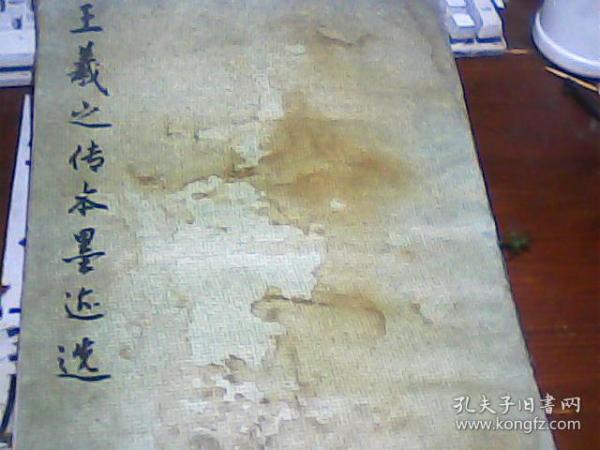 王羲之传本墨迹选
孔夫子旧書网
www.kongfz.com